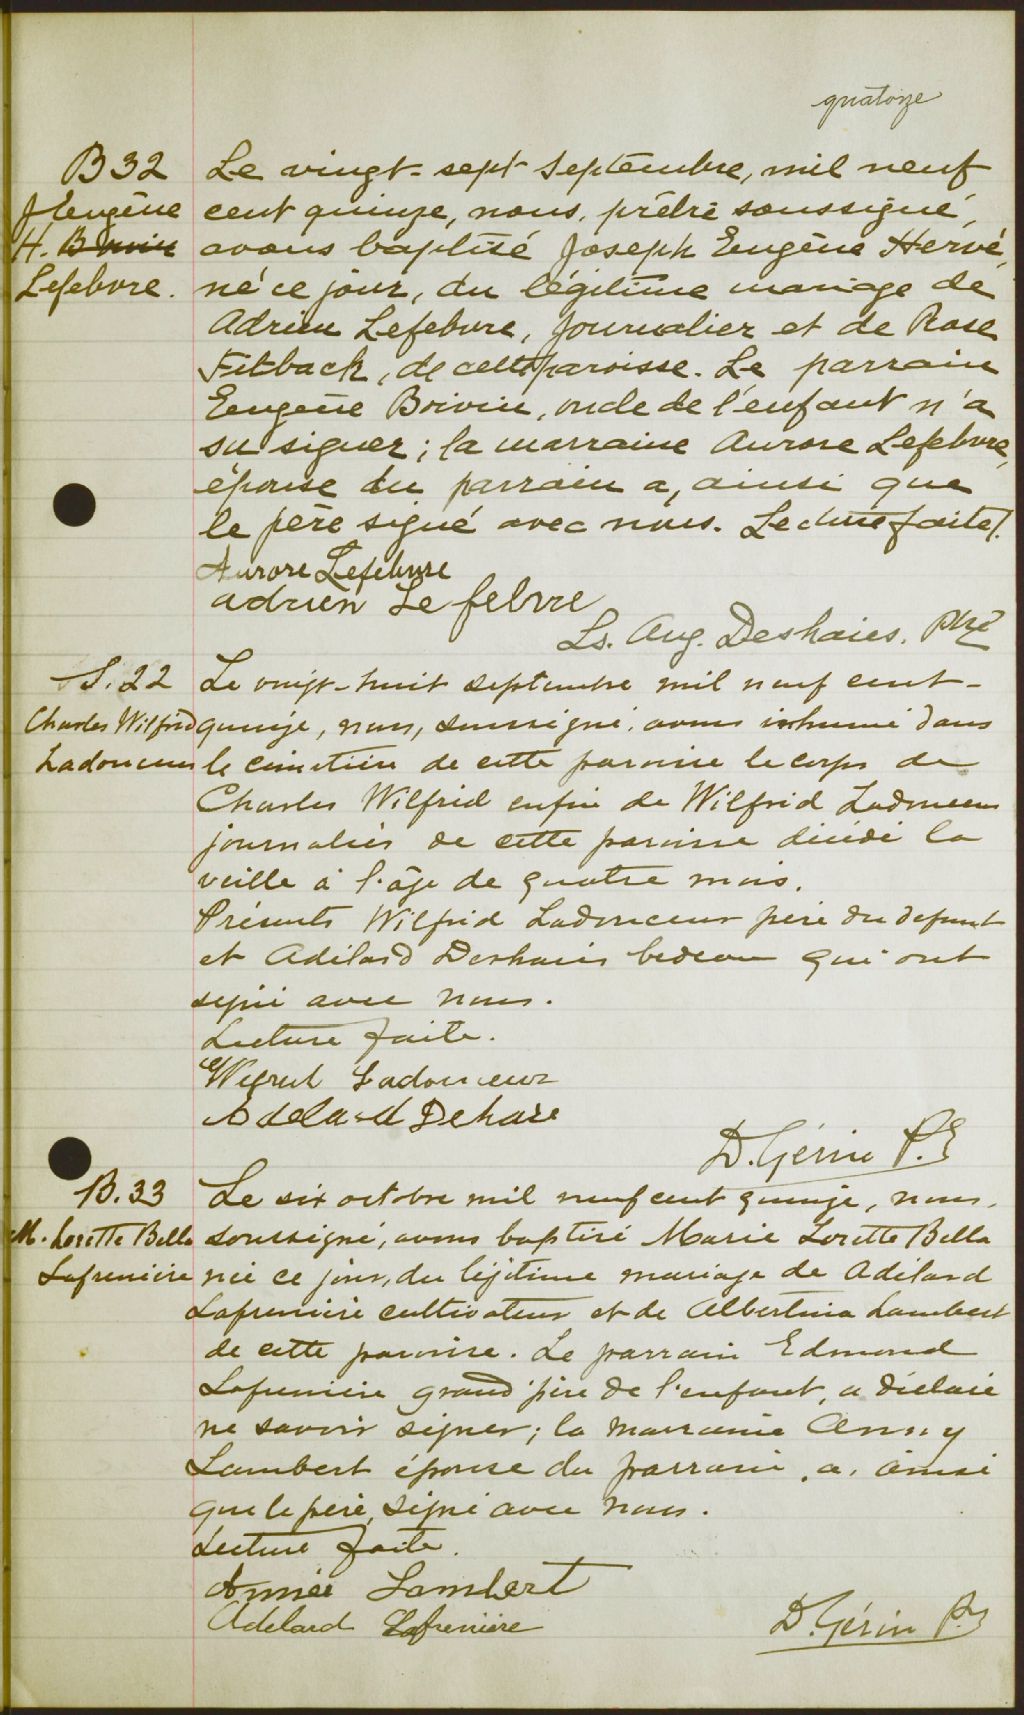 quatorze
B 32
J Eugène
H. Boivin
Lefebvre.
Le vingt-sept septembre, mil neuf
cent quinze, nous, prêtre soussigné,
avons baptisé Joseph Eugène Hervé,
né ce jour, du légitime mariage de
Adrien Lefebvre, journalier et de Rose
Fitback, de cette paroisse. Le parrain
Eugène Boivin, oncle de l'enfant n'a
su signer; la marraine Aurore Lefebvre,
épouse du parrain a, ainsi que
le père signé avec nous. Lecture faite.
Aurore Lefebvre
adrien Lefebvre
Ls. Aug. Deshaies. Ptre
S. 22
Charles Wilfrid
Ladouceur
Le vingt-huit septembre mil neuf cent-
quinze, nous, soussigné, avons inhumé dans
le cimetière de cette paroisse le corps de
Charles Wilfrid enfin de Wilfrid Ladouceur
journalier de cette paroisse décédé la
veille à l'âge de quatre mois.
Présents Wilfrid Ladouceur père du defunt
et Adélard Deshaies bedeau qui ont
signé avec nous.
Lecture faite.
Wifrid Ladouceur
Adelard Dehaie
D. Gérin P.
B. 33
M. Lorette Bella
Lafrenière
Le six octobre mil neuf cent quinze, nous,
soussigné, avons baptisé Marie Lorette Bella
née ce jour, du légitime mariage de Adélard
Lafrenière cultivateur et de Albertina Lambert
de cette paroisse. Le parrain Edmond
Lafrenière grand'père de l'enfant, a déclaré
ne savoir signer; la marraine Anny
Lambert épouse du parrain, a, ainsi
que le père, signé avec nous.
Lecture faite.
Annie Lambert
Adelard Lafreniere
D. Gérin P.